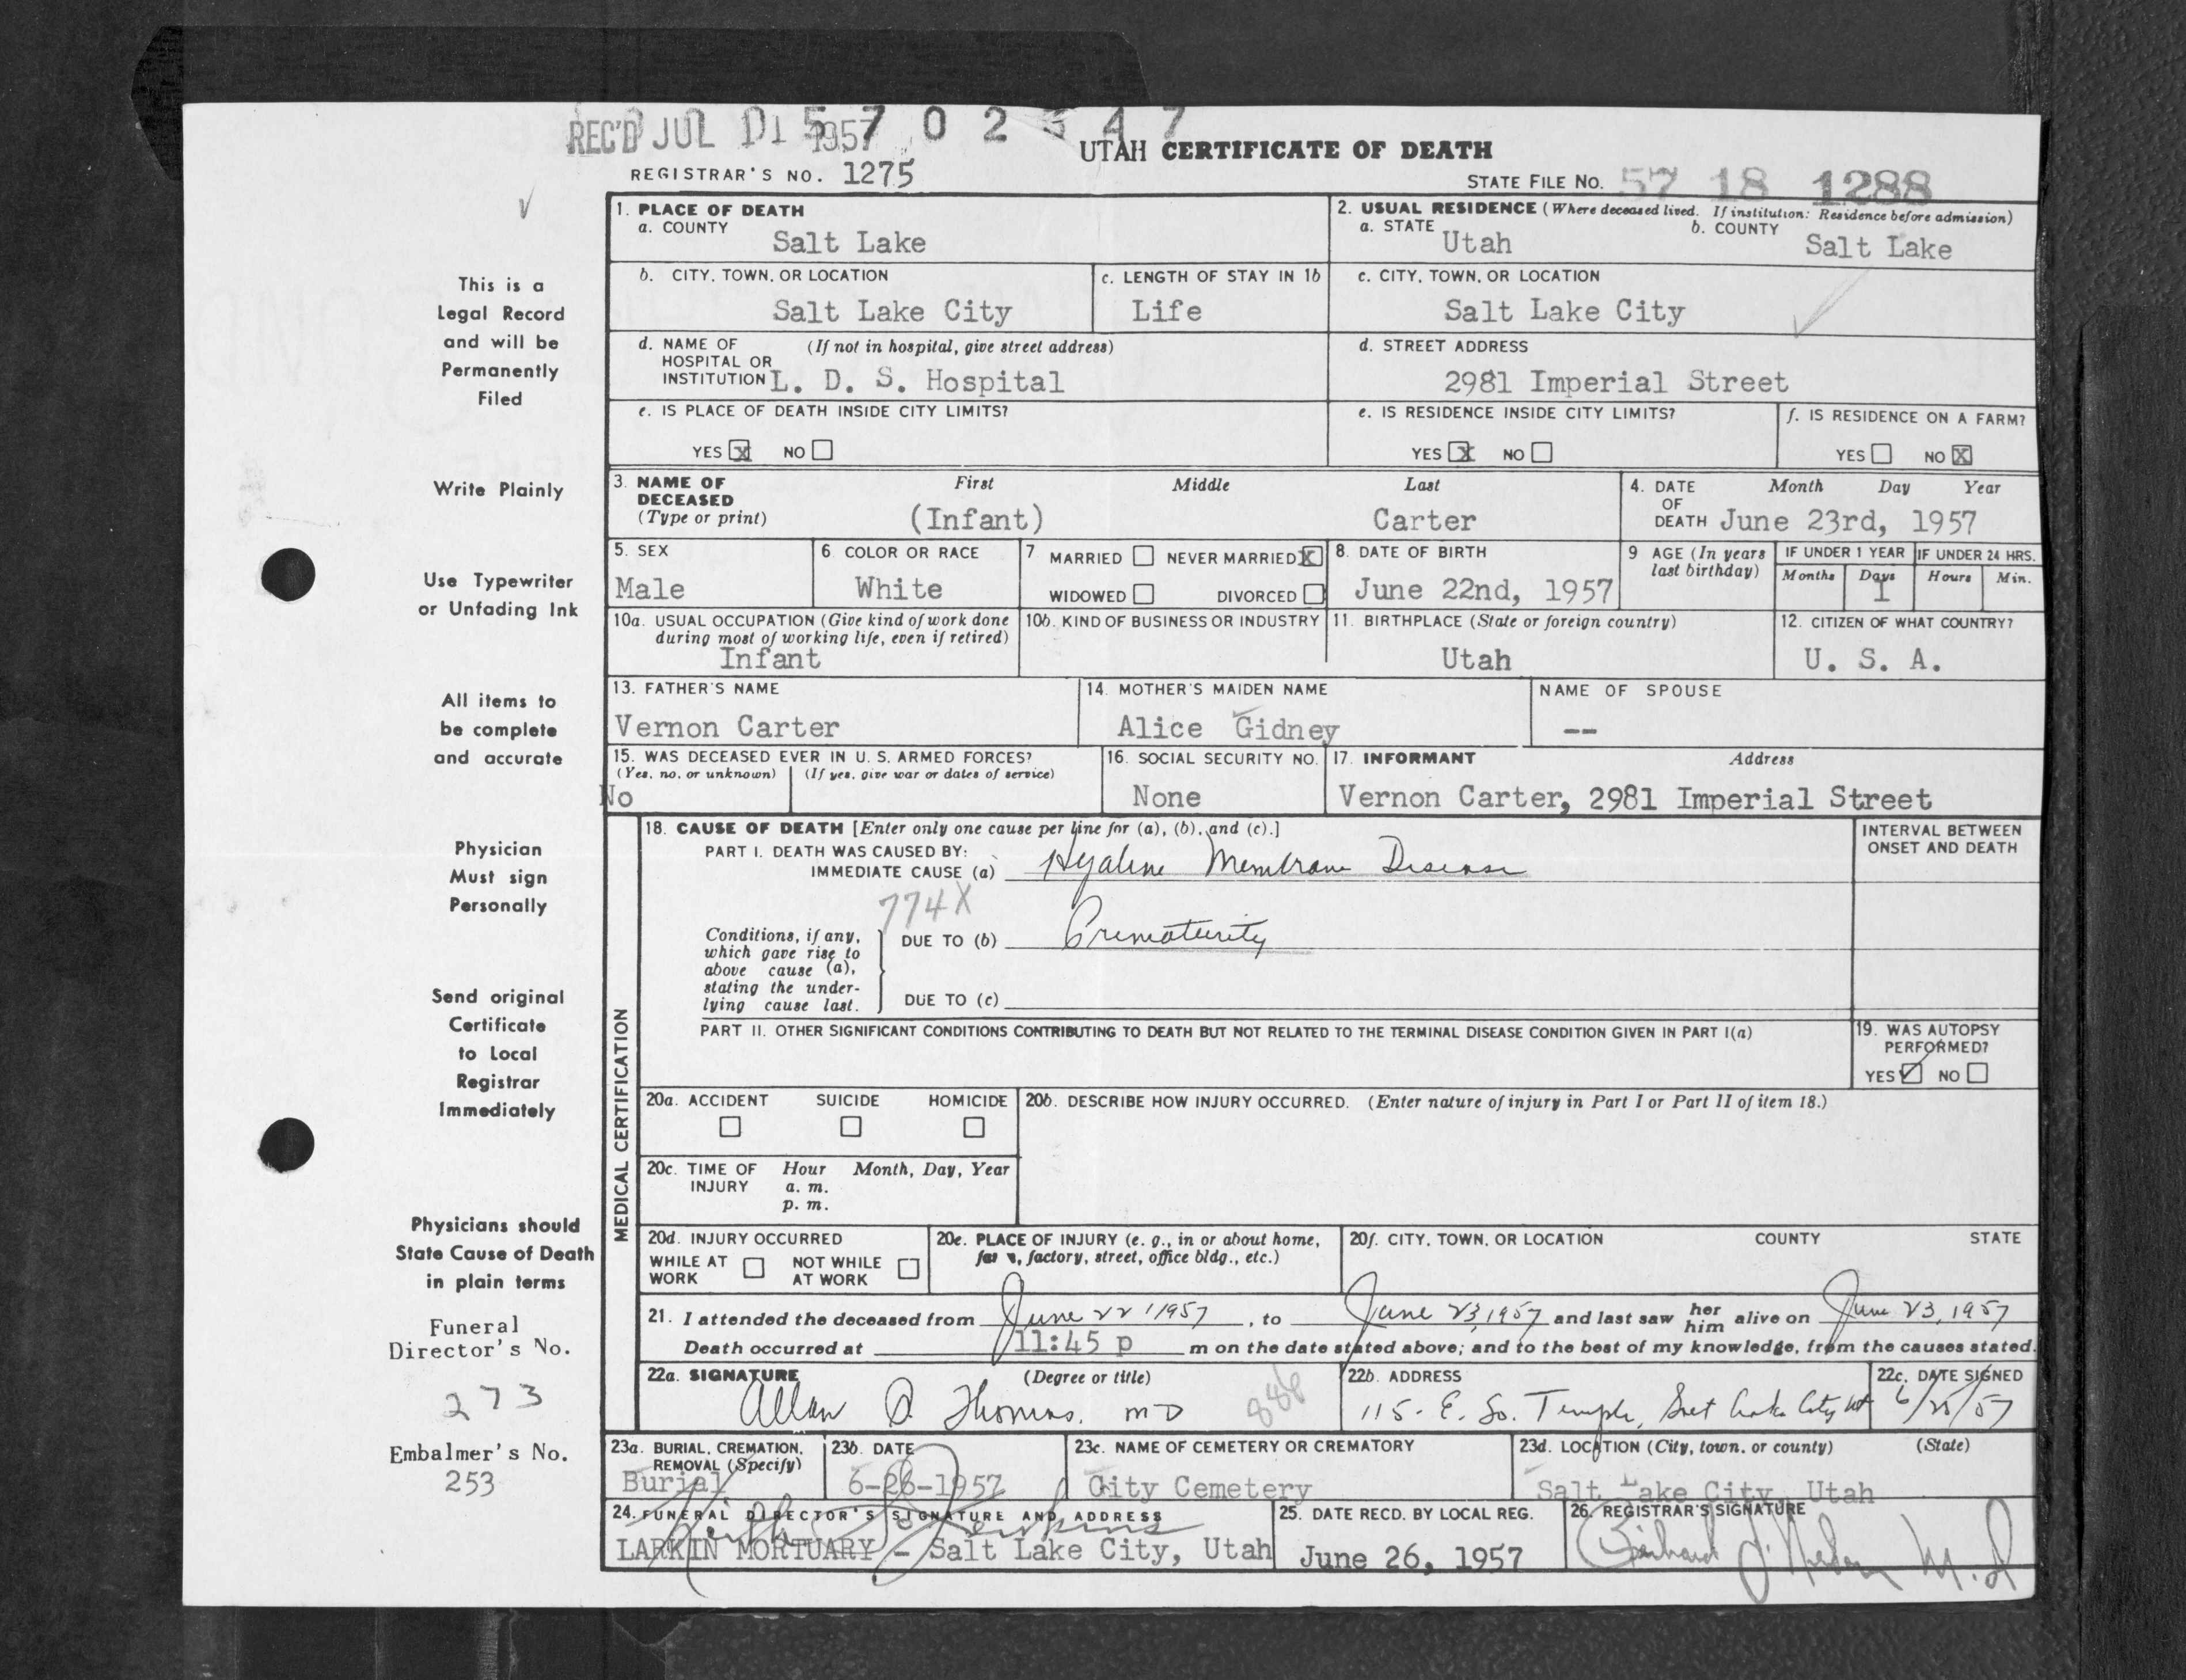 REC'D JUL 11 1957
5 7 0 2 4 7
UTAH CERTIFICATE OF DEATH
REGISTRAR'S NO. 1275
STATE FILE NO. 57 18 1288
1. PLACE OF DEATH
a. COUNTY
Salt Lake
2. USUAL RESIDENCE (Where deceased lived. If institution: Residence before admission)
a. STATE b. COUNTY
Utah Salt Lake
b. CITY, TOWN, OR LOCATION
Salt Lake City
c. LENGTH OF STAY IN 1b
Life
c. CITY, TOWN, OR LOCATION
Salt Lake City
d. NAME OF (If not in hospital, give street address)
HOSPITAL OR
INSTITUTION L. D. S. Hospital
d. STREET ADDRESS
2981 Imperial Street
e. IS PLACE OF DEATH INSIDE CITY LIMITS?
YES X NO
e. IS RESIDENCE INSIDE CITY LIMITS?
YES X NO
f. IS RESIDENCE ON A FARM?
YES NO X
3. NAME OF DECEASED (Type or print)
First Middle Last
(Infant) Carter
4. DATE OF DEATH Month Day Year
June 23rd, 1957
5. SEX
Male
6. COLOR OR RACE
White
7 MARRIED NEVER MARRIED X
WIDOWED DIVORCED
8. DATE OF BIRTH
June 22nd, 1957
9 AGE (In years last birthday)
IF UNDER 1 YEAR IF UNDER 24 HRS.
Months Days Hours Min.
1
10a. USUAL OCCUPATION (Give kind of work done
during most of working life, even if retired)
Infant
10b. KIND OF BUSINESS OR INDUSTRY
11. BIRTHPLACE (State or foreign country)
Utah
12. CITIZEN OF WHAT COUNTRY?
U. S. A.
13. FATHER'S NAME
Vernon Carter
14. MOTHER'S MAIDEN NAME
Alice Gidney
NAME OF SPOUSE
--
15. WAS DECEASED EVER IN U. S. ARMED FORCES?
(Yes, no, or unknown) (If yes, give war or dates of service)
No
16. SOCIAL SECURITY NO.
None
17. INFORMANT Address
Vernon Carter, 2981 Imperial Street
MEDICAL CERTIFICATION
18. CAUSE OF DEATH [Enter only one cause per line for (a), (b), and (c).]
PART I. DEATH WAS CAUSED BY:
IMMEDIATE CAUSE (a) Hyaline Membrane Disease
774X
Conditions, if any,
which gave rise to
above cause (a),
stating the under-
lying cause last.
DUE TO (b) Prematurity
DUE TO (c)
INTERVAL BETWEEN
ONSET AND DEATH
PART II. OTHER SIGNIFICANT CONDITIONS CONTRIBUTING TO DEATH BUT NOT RELATED TO THE TERMINAL DISEASE CONDITION GIVEN IN PART I(a)
19. WAS AUTOPSY
PERFORMED?
YES ✓ NO
20a. ACCIDENT SUICIDE HOMICIDE
20b. DESCRIBE HOW INJURY OCCURRED. (Enter nature of injury in Part I or Part II of item 18.)
20c. TIME OF INJURY Hour Month, Day, Year
a. m.
p. m.
20d. INJURY OCCURRED
WHILE AT WORK NOT WHILE AT WORK
20e. PLACE OF INJURY (e. g., in or about home,
farm, factory, street, office bldg., etc.)
20f. CITY, TOWN, OR LOCATION COUNTY STATE
21. I attended the deceased from June 22 1957, to June 23, 1957 and last saw her him alive on June 23, 1957
Death occurred at 11:45 p m on the date stated above; and to the best of my knowledge, from the causes stated.
22a. SIGNATURE (Degree or title)
Allan Thomas, MD
886
22b. ADDRESS
115 - E. So. Temple, Salt Lake City Ut
22c. DATE SIGNED
6/25/57
23a. BURIAL, CREMATION,
REMOVAL (Specify)
Burial
23b. DATE
6-26-1957
23c. NAME OF CEMETERY OR CREMATORY
City Cemetery
23d. LOCATION (City, town, or county) (State)
Salt Lake City, Utah
24. FUNERAL DIRECTOR'S SIGNATURE AND ADDRESS
LARKIN MORTUARY - Salt Lake City, Utah
25. DATE RECD. BY LOCAL REG.
June 26, 1957
26. REGISTRAR'S SIGNATURE
M.D
This is a
Legal Record
and will be
Permanently
Filed
Write Plainly
Use Typewriter
or Unfading Ink
All items to
be complete
and accurate
Physician
Must sign
Personally
Send original
Certificate
to Local
Registrar
Immediately
Physicians should
State Cause of Death
in plain terms
Funeral
Director's No.
273
Embalmer's No.
253